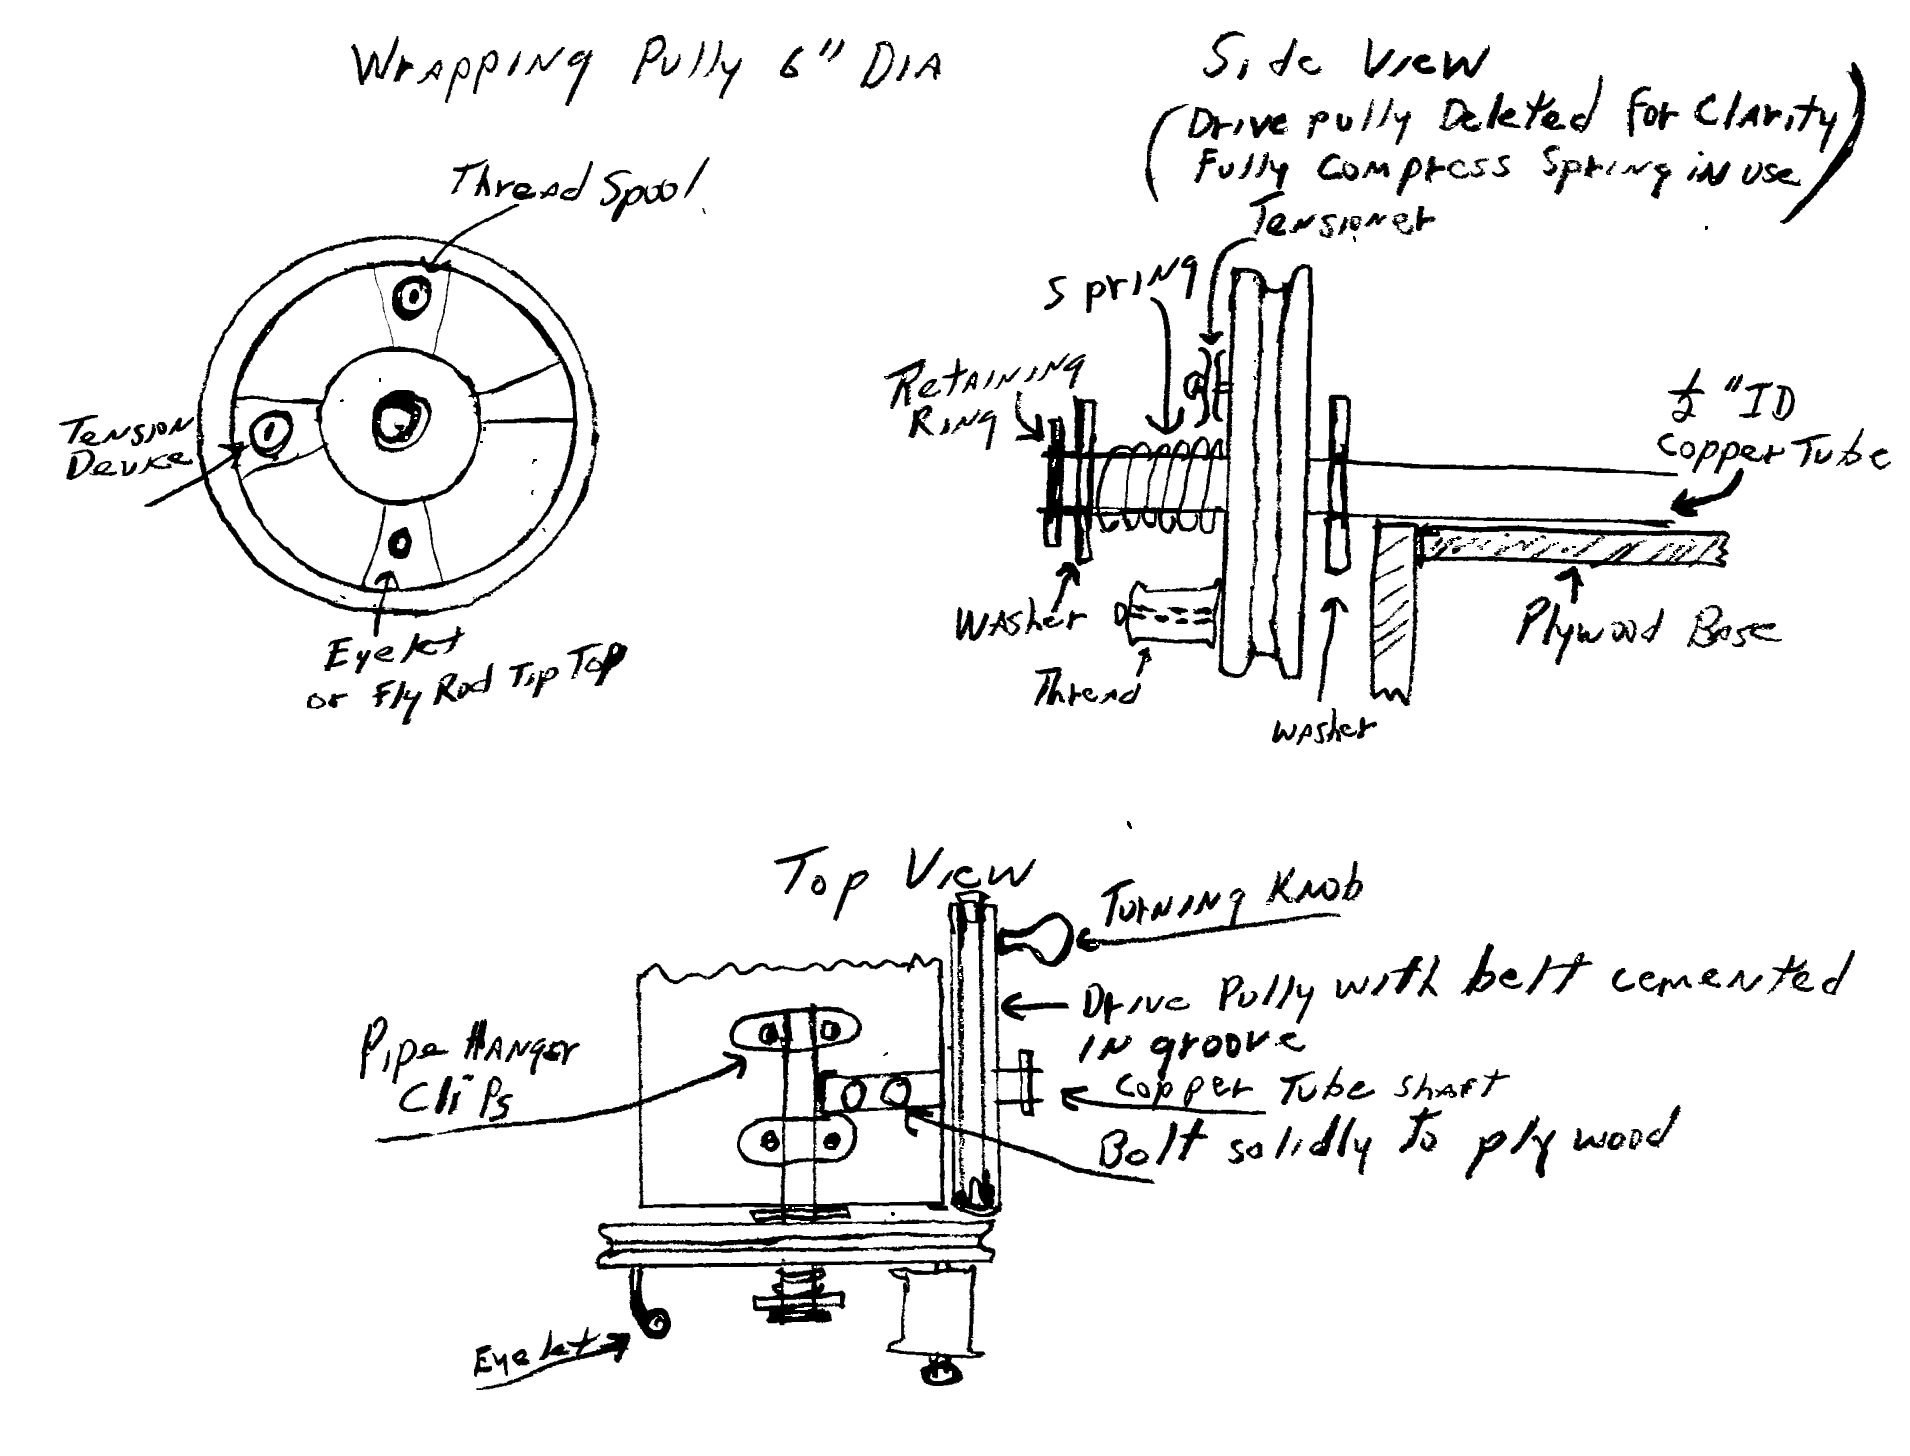 Wrapping Pully 6" DIA
Thread Spool
Tension
Device
Eyelet
or Fly Rod Tip Top
Side View
(Drive pully Deleted for Clarity
Fully Compress Spring in use)
Tensioner
Spring
Retaining
Ring
1/2" ID
Copper Tube
Washer
Plywood Base
Thread
washer
Top View
Turning Knob
Drive Pully with belt cemented
in groove
Pipe Hanger
Clips
Copper Tube shaft
Bolt solidly to plywood
Eyelet